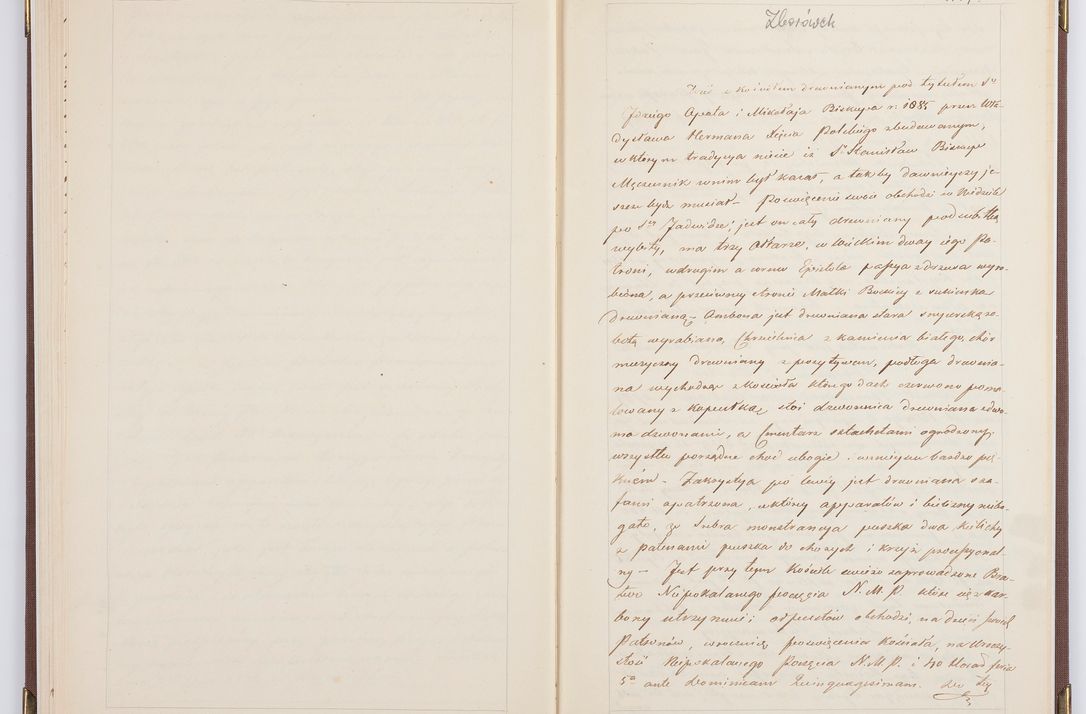 Zborówek
Wieś z kościołem drewnianym pod tytułem Sgo
Idziego Opata i Mikołaja Biskupa r: 1085 przez Wła-
dysława Hermana Xięcia Polskiego zbudowanym,
w którym tradycya niesie iż S. Stanisław Biskup
Męczennik w nim był kazał, a tak by dawniejszy je-
szcze być musiał – Poświęcenie swoie obchodzi w Niedziele
po Stej Jadwidze, jest on cały drewniany pod
wybity, ma trzy Ołtarze, w Wielkim dway iego Pa-
troni, w drugim a cornu Epistolæ passya z drzewa wyro-
biona, a przeciwny stronie Matki Boskiey z sukienką
drewnianą – Ambona jest drewniana stara snycerską ro-
botą wyrabiana, Chrzcielnia z kamienia białego, chór
muzyczny drewniany z pozytywem, podłoga drewnia-
na wychodząc z Kościoła którego dach czerwono poma-
lowany z kopułką stoi dzwonnica drewniana z dwo-
ma dzwonami, a Cmentarz sztachetami ogrodzony,
wszystko porządne choć ubogie
– Zakrystya po lewey jest drewniana sza-
fami opatrzona, w których apparatów i bielizny niebo-
gato, ze srebra monstrancya puszka dwa kielichy
z patenami puszka do chorych i krzyż processyonal-
ny – Jest przy tym Kościele świeżo zaprowadzone Bra-
two Niepokalanego poczęcia N. M. P. które się z skar-
bony utrzymuie; odpustów obchodzi, na dzień
Patronów, w rocznicę poświęcenia Kościoła, na Uroczy-
stość Niepokalanego Poczęcia N. M. P. i 40 feria
5a ante Dominicam Quinquagesimam.